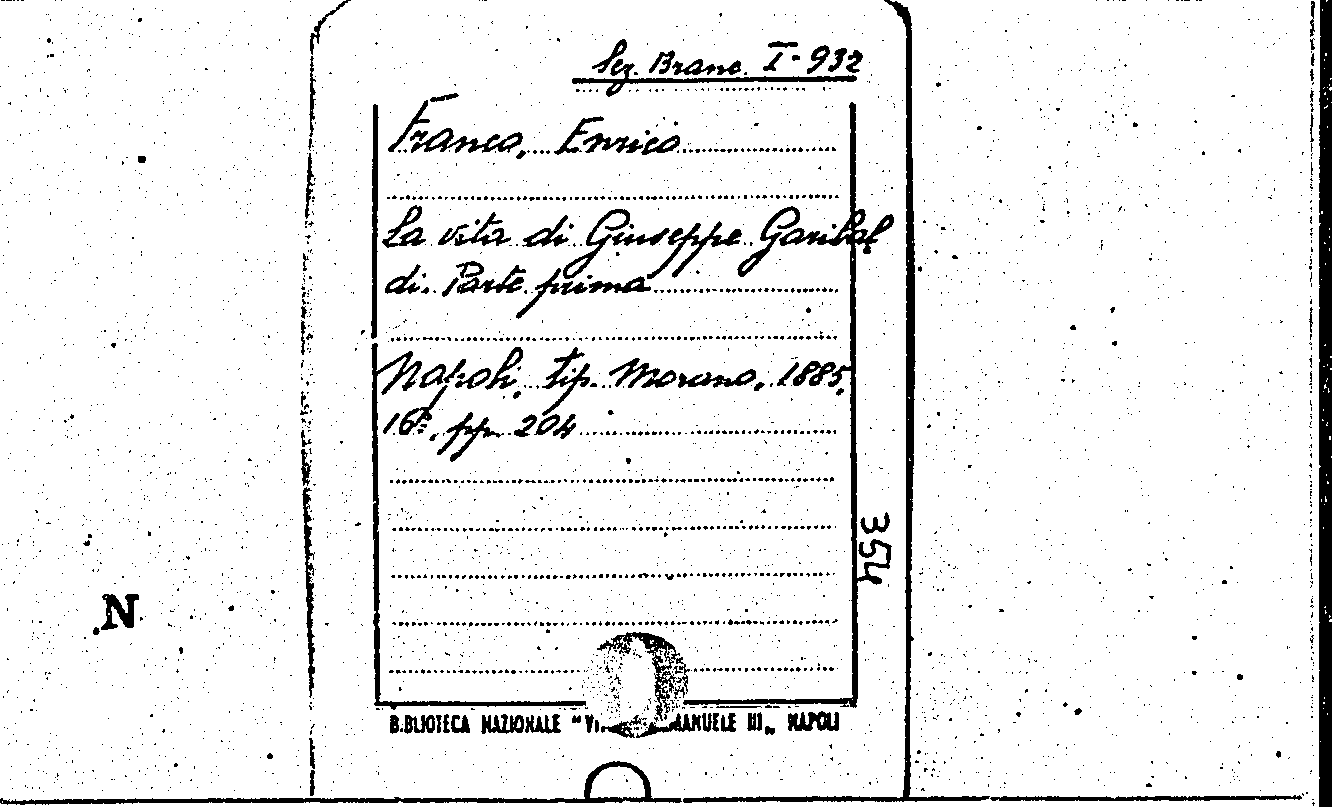 Sez. Branc. I-932
Franco, Enrico
La vita di Giuseppe Garibal
di. Parte prima
Napoli, tip. Morano, 1885,
16º, pp. 204
354
N
BIBLIOTECA NAZIONALE "VI MANUELE III„ NAPOLI